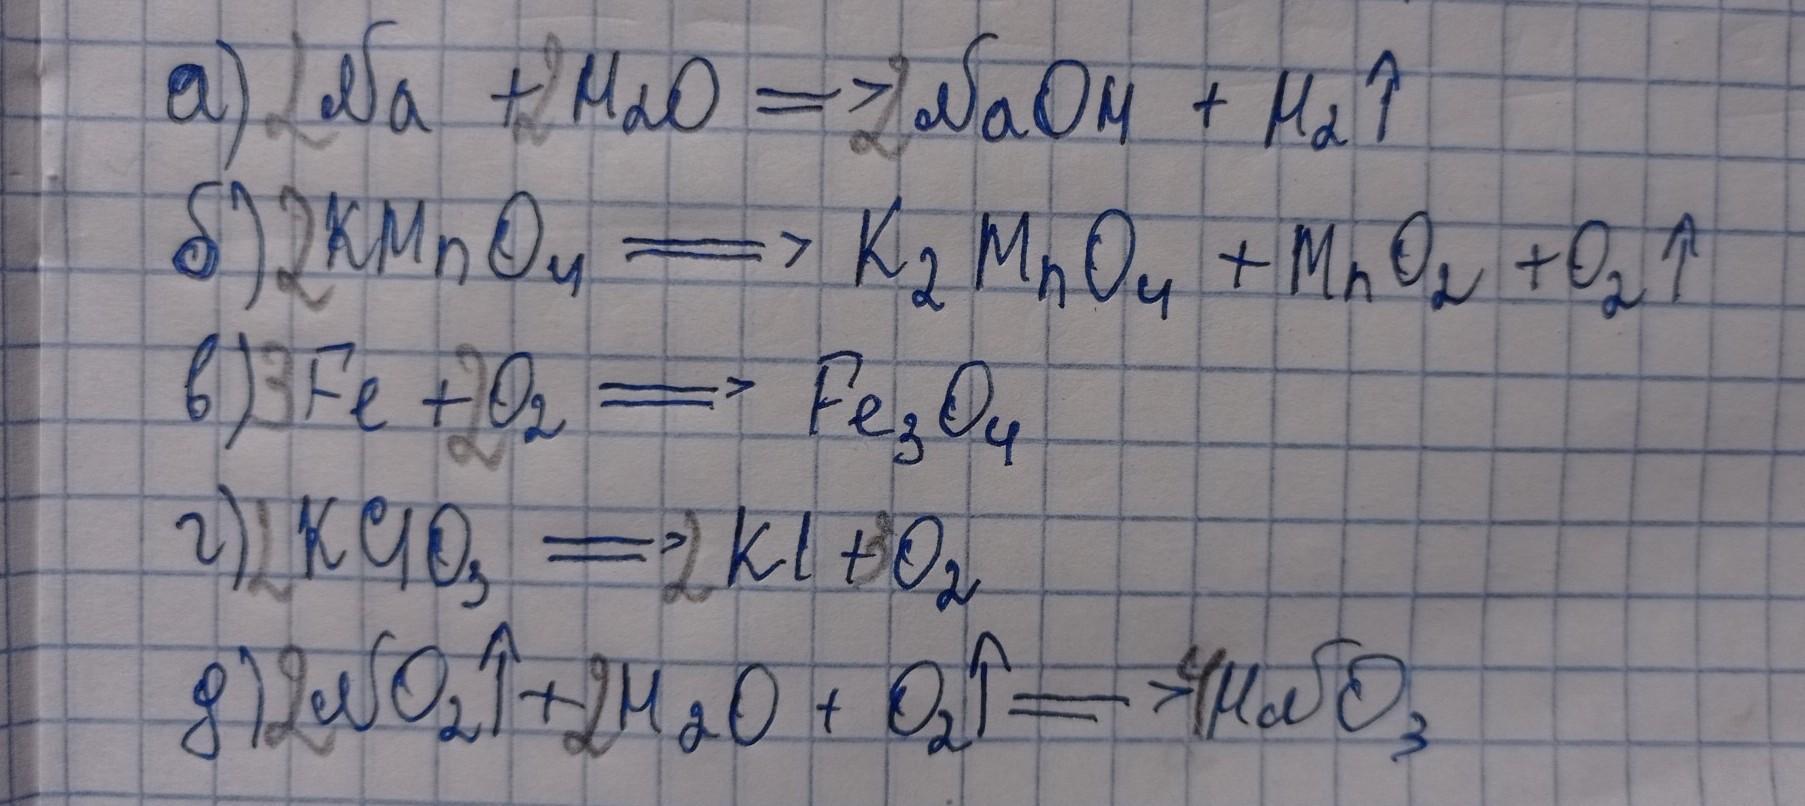 а) 2Na + 2H₂O => 2NaOH + H₂↑
б) 2KMnO₄ => K₂MnO₄ + MnO₂ + O₂↑
в) 3Fe + 2O₂ => Fe₃O₄
г) 2KClO₃ => 2Kl + 3O₂
д) 2NO₂↑ + 2H₂O + O₂↑ => 4HNO₃